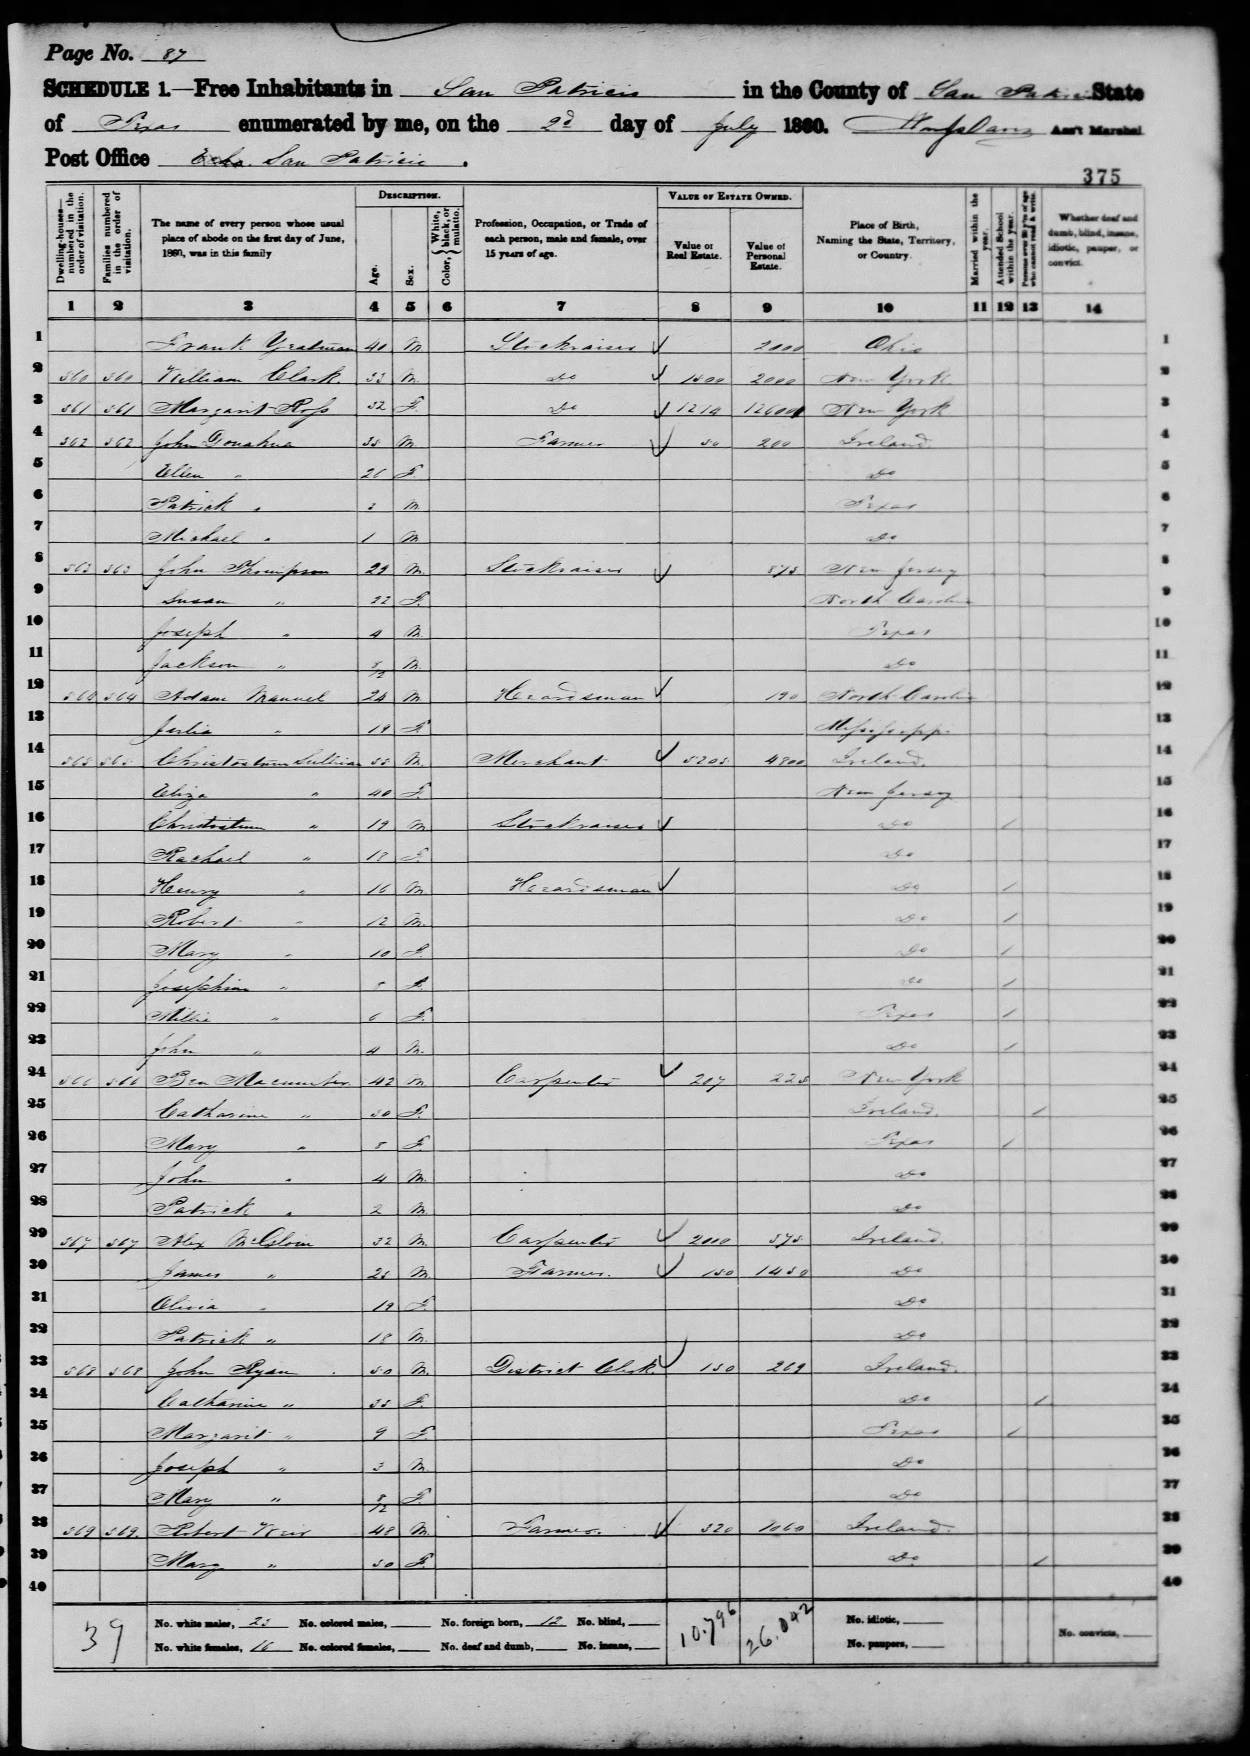 Page No. 87
SCHEDULE 1.—Free Inhabitants in San Patricio in the County of San Patricio State
of Texas enumerated by me, on the 2d day of July 1860. Ass't Marshal
Post Office San Patricio.
375
Dwelling-houses—numbered in the order of visitation.
Families numbered in the order of visitation.
The name of every person whose usual place of abode on the first day of June, 1860, was in this family
DESCRIPTION.
Age.
Sex.
Color, { White, black, or mulatto.
Profession, Occupation, or Trade of each person, male and female, over 15 years of age.
VALUE OF ESTATE OWNED.
Value of Real Estate.
Value of Personal Estate.
Place of Birth, Naming the State, Territory, or Country.
Married within the year.
Attended School within the year.
Persons over 20 y'rs of age who cannot read & write.
Whether deaf and dumb, blind, insane, idiotic, pauper, or convict.
1 2 3 4 5 6 7 8 9 10 11 12 13 14
1 Frank Yeatman 40 M. Stockraiser ✓ 2000 Ohio 1
2 560 560 William Clark. 33 M. Do ✓ 1500 2000 New York. 2
3 561 561 Margarit Ross 32 F. Do ✓ 1214 12600 New York 3
4 562 562 John Donahua 35 M. Farmer ✓ 50 200 Ireland. 4
5 Ellen " 26 F. Do 5
6 Patrick " 3 M. Texas 6
7 Michael " 1 M. Do 7
8 563 563 John Thompson 29 M. Stockraiser ✓ 875 New Jersey 8
9 Susan " 22 F. North Carolina 9
10 Joseph " 4 M. Texas 10
11 Jackson " 8/12 M. Do 11
12 564 564 Adam Manuel 24 M. Heardsman ✓ 190 North Carolina 12
13 Julia " 19 F. Mississippi. 13
14 565 565 Christostum Sullivan 55 M. Merchant ✓ 5205 4800 Ireland. 14
15 Eliza " 40 F. New Jersey 15
16 Christostum " 19 M. Stockraiser ✓ Do / 16
17 Rachael " 18 F. Do 17
18 Henry " 16 M. Heardsman ✓ Do / 18
19 Robert " 12 M. Do / 19
20 Mary " 10 F. Do / 20
21 Josephine " 8 F. Do / 21
22 Millie " 6 F. Texas / 22
23 John " 4 M. Do / 23
24 566 566 Ben Macumber 42 M. Carpenter ✓ 207 225 New York 24
25 Catharine " 30 F. Ireland. / 25
26 Mary " 8 F. Texas / 26
27 John " 4 M. Do 27
28 Patrick " 2 M. Do 28
29 567 567 Alex McGloin 32 M. Carpenter ✓ 2000 575 Ireland. 29
30 James " 25 M. Farmer. ✓ 150 1450 Do 30
31 Olivia " 19 F. Do 31
32 Patrick " 18 M. Do 32
33 568 568 John Ryan 50 M. District Clerk. ✓ 150 269 Ireland. 33
34 Catharine " 35 F. Do / 34
35 Margarit " 9 F. Texas / 35
36 Joseph " 3 M. Do 36
37 Mary " 8/12 F. Do 37
38 569 569. Robert Weir 48 M. Farmer. ✓ 320 1060 Ireland. 38
39 Mary " 50 F. Do / 39
40 40
39 No. white males, 23 No. colored males, No. foreign born, 12 No. blind, 10.796 26.042 No. idiotic,
No. white females, 16 No. colored females, No. deaf and dumb, No. insane, No. paupers, No. convicts,